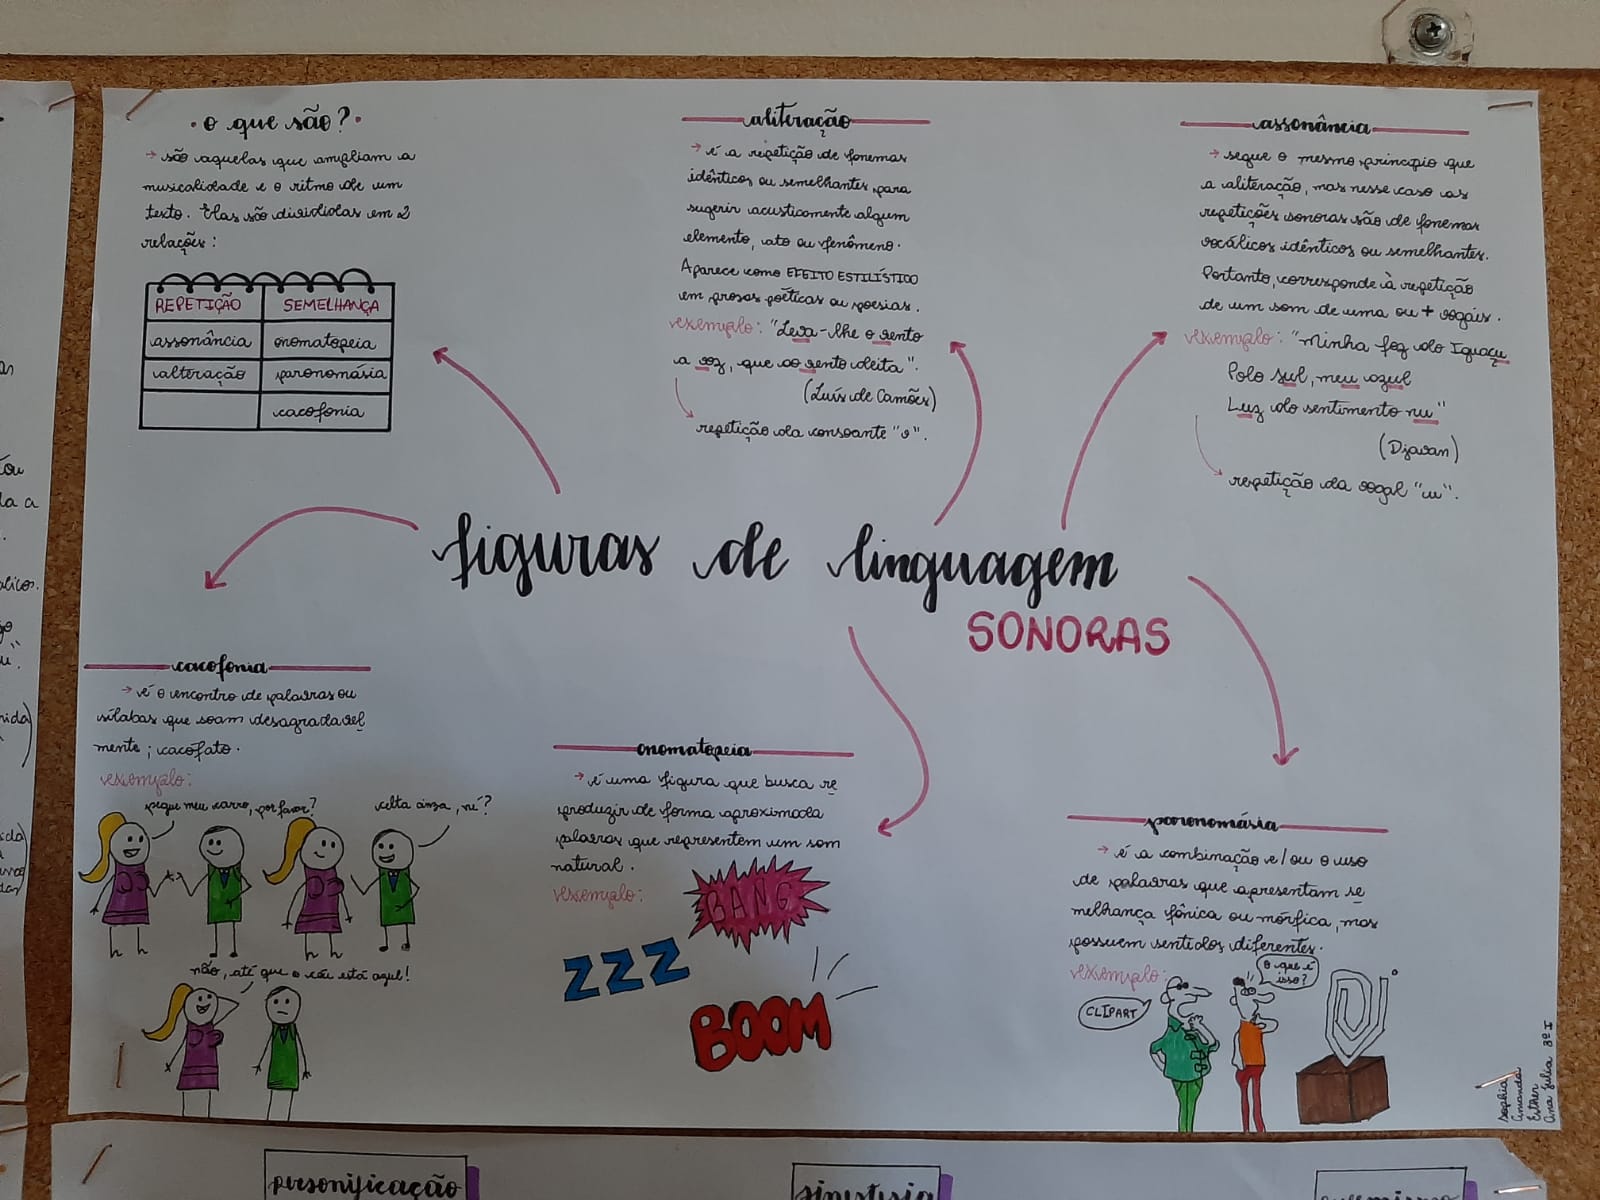 • o que são? •
→ são aquelas que ampliam a
musicalidade e o ritmo de um
texto. Elas são divididas em 2
relações:
REPETIÇÃO SEMELHANÇA
assonância onomatopeia
alteração paronomásia
cacofonia
aliteração
→ é a repetição de fonemas
idênticos ou semelhantes para
sugerir acusticamente algum
elemento, ato ou fenômeno.
Aparece como EFEITO ESTILÍSTICO
em prosas poéticas ou poesias.
exemplo: "Leva-lhe o vento
a voz, que ao vento deita".
(Luís de Camões)
repetição da consoante "v".
assonância
→ segue o mesmo princípio que
a aliteração, mas nesse caso as
repetições sonoras são de fonemas
vocálicos idênticos ou semelhantes.
Portanto, corresponde à repetição
de um som de uma ou + vogais.
exemplo: "Minha foz do Iguaçu
Polo sul, meu azul
Luz do sentimento nu"
(Djavan)
repetição da vogal "u".
figuras de linguagem
SONORAS
cacofonia
→ é o encontro de palavras ou
sílabas que soam desagradavel
mente; cacofato.
exemplo:
pegue meu carro, por favor?
celta cinza, né?
não, até que o céu está azul!
onomatopeia
→ é uma figura que busca re
produzir de forma aproximada
palavras que representem um som
natural.
exemplo:
BANG
ZZZ
BOOM
paronomásia
→ é a combinação e/ou o uso
de palavras que apresentam se
melhança fônica ou mórfica, mas
possuem sentidos diferentes.
exemplo:
O que é
isso?
CLIPART
Sophia
Amanda
Esther
Ana Julia 8º I
personificação
sinestesia